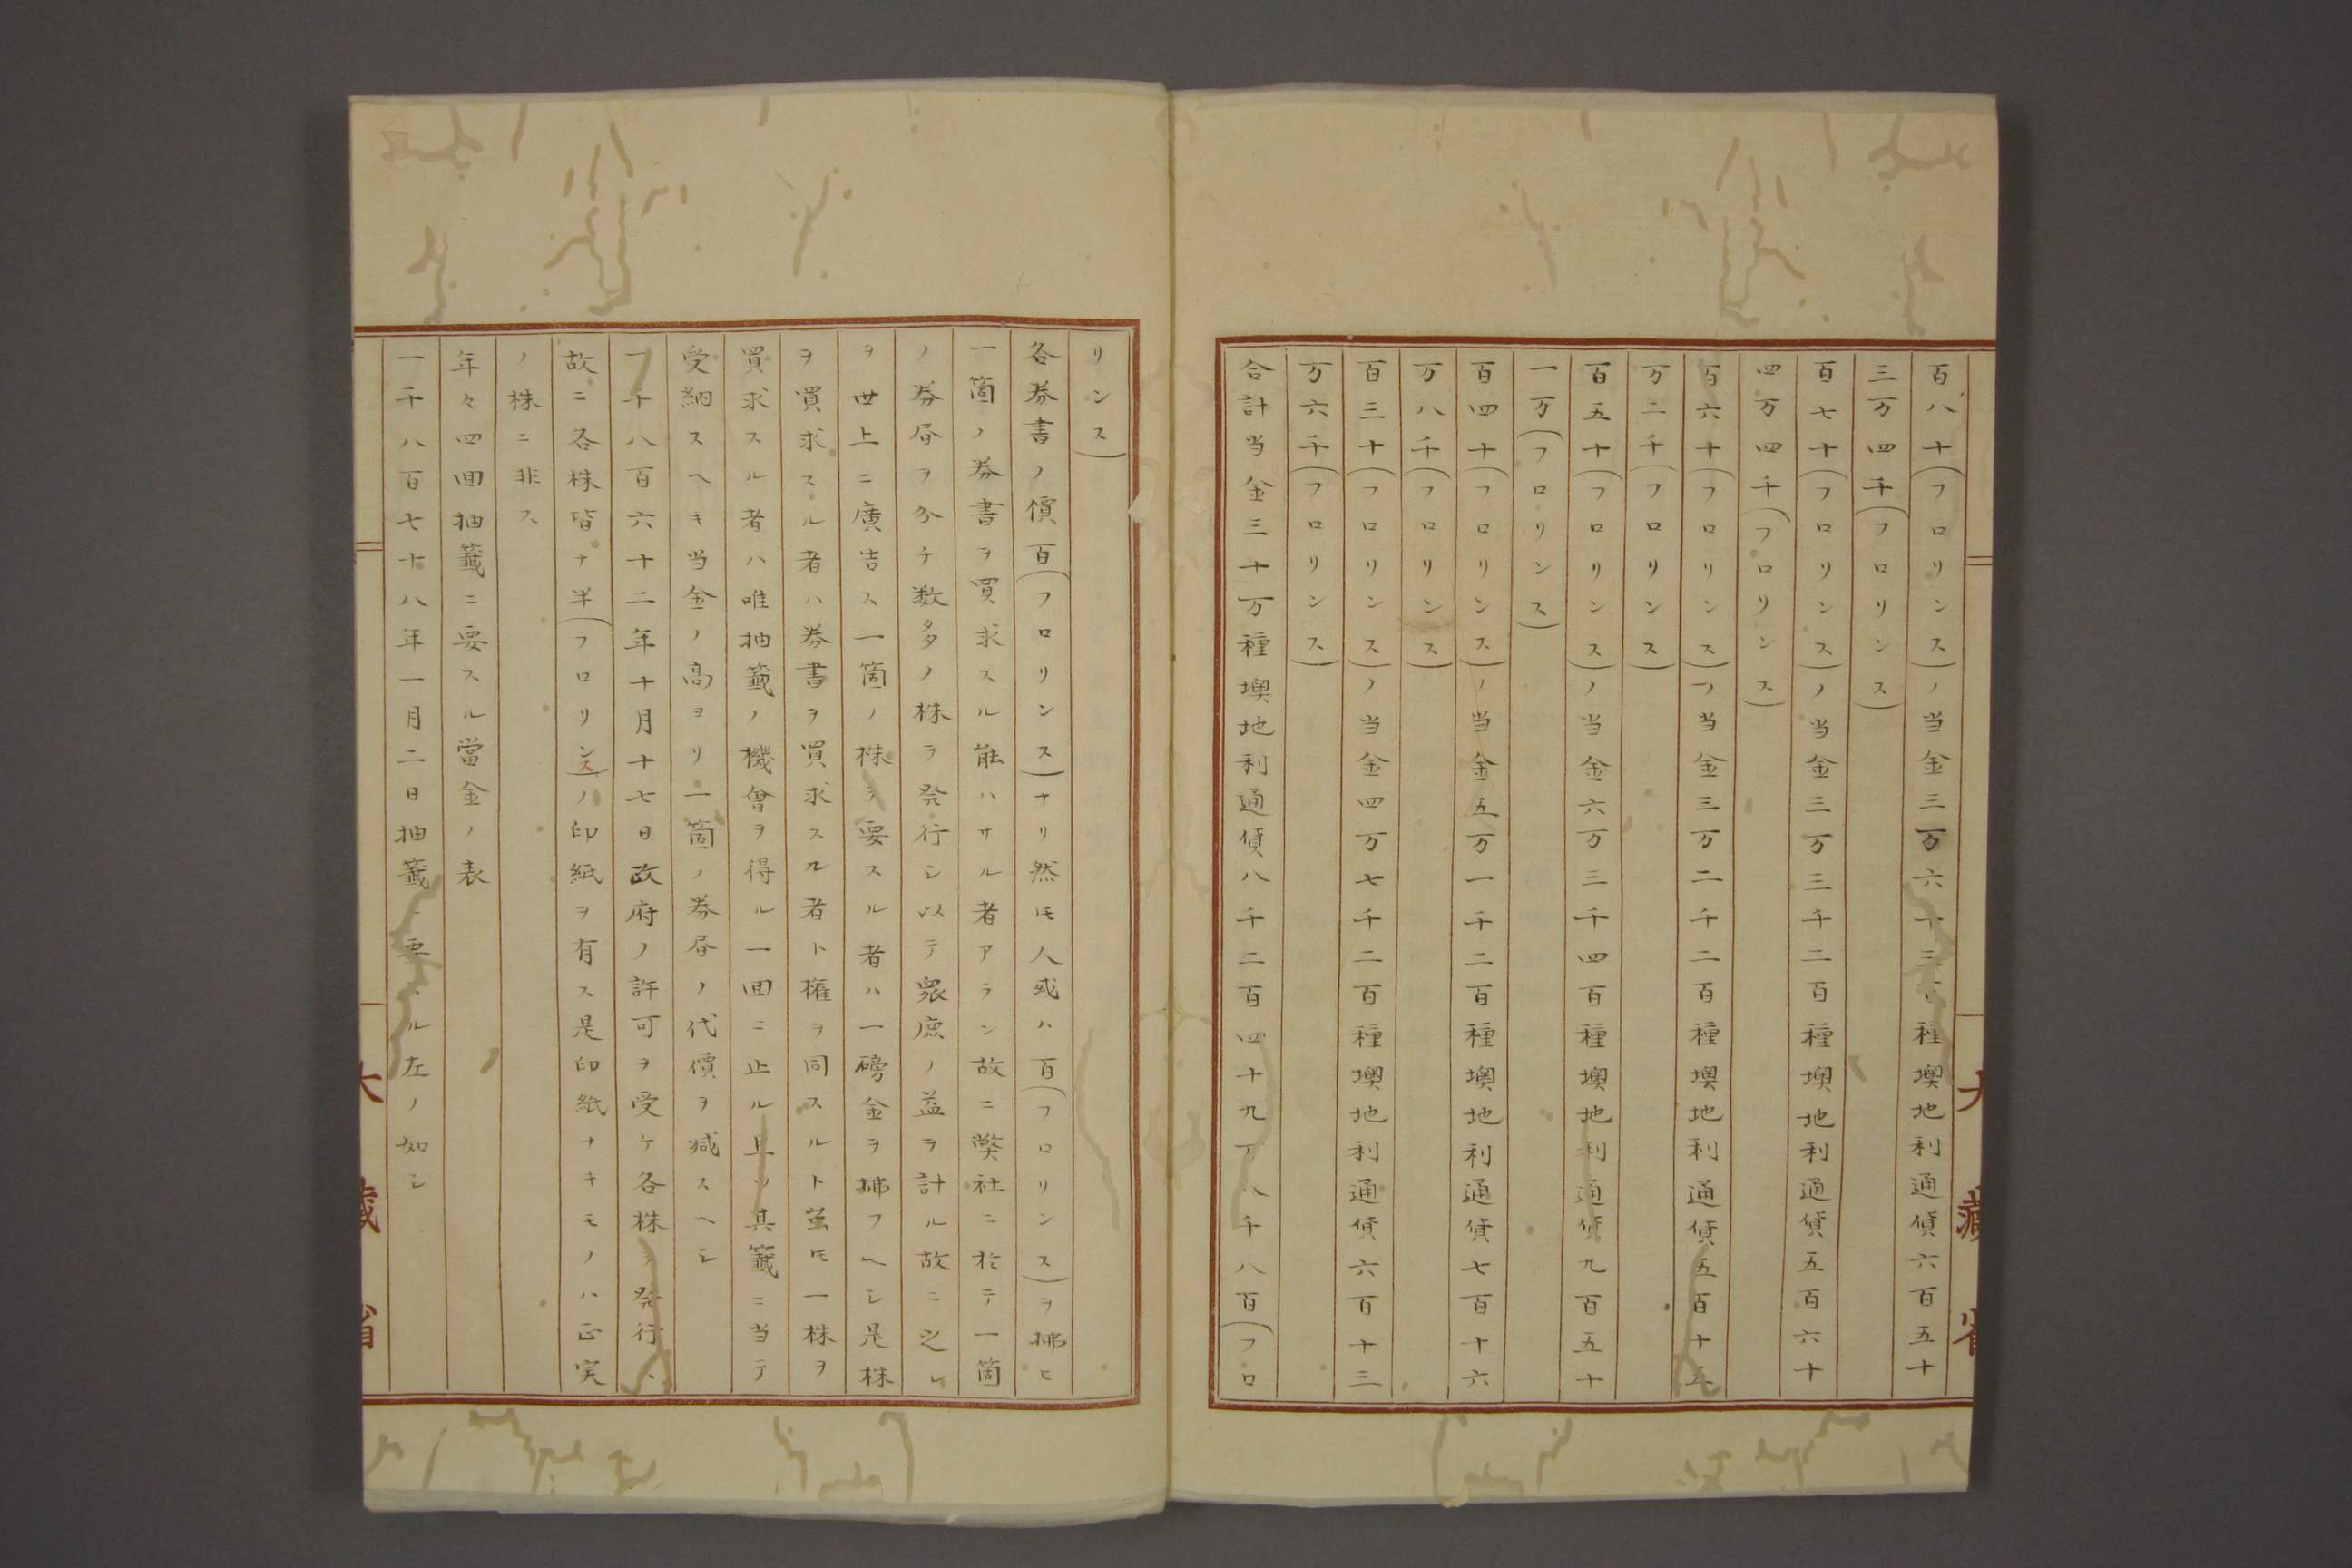 百八十(フロリンス)ノ当金三万六千三百種墺地利通貨六百五十
三万四千(フロリンス)
百七十(フロリンス)ノ当金三万三千二百種墺地利通貨五百六十
四万四千(フロリンス)
百六十(フロリンス)ノ当金三万二千二百種墺地利通貨五百十五
万二千(フロリンス)
百五十(フロリンス)ノ当金六万三千四百種墺地利通貨九百五十
一万(フロリンス)
百四十(フロリンス)ノ当金五万一千二百種墺地利通貨七百十六
万八千(フロリンス)
百三十(フロリンス)ノ当金四万七千二百種墺地利通貨六百十三
万六千(フロリンス)
合計当金三十万種墺地利通貨八千二百四十九万八千八百(フロ
リンス)
各券書ノ價百(フロリンス)ナリ然𪜈人或ハ百(フロリンス)ヲ拂ヒ
一箇ノ券書ヲ買求スル能ハサル者アラン故ニ弊社ニ於テ一箇
ノ券書ヲ分チ数多ノ株ヲ発行シ以テ衆庶ノ益ヲ計ル故ニ之レ
ヲ世上ニ廣告ス一箇ノ株ヲ要スル者ハ一磅金ヲ拂フヘシ是株
ヲ買求スル者ハ券書ヲ買求スル者ト権ヲ同スルト虽𪜈一株ヲ
買求スル者ハ唯抽籤ノ機會ヲ得ル一回ニ止ル且ツ其籤ニ当テ
受納スヘキ当金ノ高ヨリ一箇ノ券書ノ代價ヲ減スヘシ
一千八百六十二年十月十七日政府ノ許可ヲ受ケ各株ヲ発行ス
故ニ各株皆ナ半(フロリンス)ノ印紙ヲ有ス是印紙ナキモノハ正実
ノ株ニ非ス
年々四回抽籤ニ要スル當金ノ表
一千八百七十八年一月二日抽籤ニ要スル左ノ如シ
大藏省
大藏省